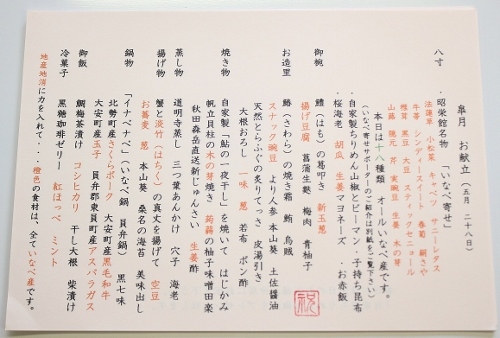 皐月　お献立（五月　二十八）
八寸　・昭栄館名物　「いなべ寄せ」
法蓮草　小松菜　キャベツ　サニーレタス
牛蒡　シンディースイート　春菊　絹さや
椎茸　黒豆　大豆　スティックセニョール
山葵　筍　芹　実豌豆　生姜　木の芽
本日は十八種類　オールいなべ産です。
（いなべ寄せサポーターのご紹介は別紙をご覧下さい）
・自家製ちりめん山椒とピーマン・子持ち昆布
・桜海老　胡瓜　生姜マヨネーズ　・お赤飯
御椀　鱧（はも）の葛叩き　新玉葱
揚げ豆腐　菖蒲生麩　梅肉　青柚子
お造里　鰆（さわら）の焼き霜　鮪　烏賊
スナック豌豆　より人参　本山葵　土佐醤油
天然とらふぐの炙りてっさ　皮湯引き
大根おろし　一味　葱　若布　ポン酢
焼き物　自家製「鮎の一夜干し」を焼いて　はじかみ
帆立貝柱の木の芽焼き　蒟蒻の柚子味噌田楽
秋田森岳直送新じゅんさい　生姜酢
蒸し物　道明寺蒸し　三つ葉あんかけ　穴子　海老
揚げ物　蟹と淡竹（はちく）の真丈を揚げて　空豆
お蕎麦　葱　本山葵　桑名の海苔　美味出し
鍋物　「イナベナベ」（いなべ鍋　員弁鍋）　黒七味
北勢町産さくらポーク　大安町産黒毛和牛
大安町産玉子　員弁郡東員町産アスパラガス
御飯　鯛梅茶漬け　コシヒカリ　干し大根　柴漬け
冷菓子　黒糖珈琲ゼリー　紅ほっぺ　ミント
地産地消に力を入れて・・・橙色の食材は、全ていなべ産です。
祝